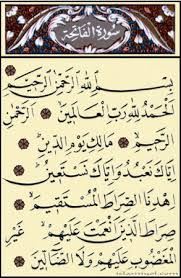 سُورَةُ الْفَاتِحَةِ
بِسْمِ اللَّهِ الرَّحْمَٰنِ الرَّحِيمِ
الْحَمْدُ لِلَّهِ رَبِّ الْعَالَمِينَ الرَّحْمَٰنِ
الرَّحِيمِ مَالِكِ يَوْمِ الدِّينِ
إِيَّاكَ نَعْبُدُ وَإِيَّاكَ نَسْتَعِينُ
اهْدِنَا الصِّرَاطَ الْمُسْتَقِيمَ
صِرَاطَ الَّذِينَ أَنْعَمْتَ عَلَيْهِمْ غَيْرِ
الْمَغْضُوبِ عَلَيْهِمْ وَلَا الضَّالِّينَ